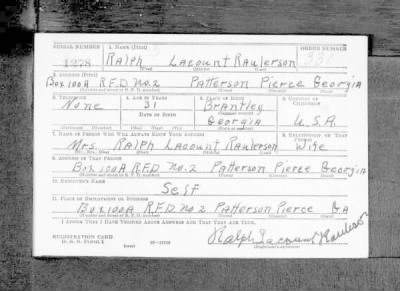 SERIAL NUMBER 1. NAME (Print) ORDER NUMBER
1278 Ralph Lacount Raulerson 331
2. ADDRESS (Print)
Box 100A R.F.D. No. 2 Patterson Pierce Georgia
3. TELEPHONE 4. AGE IN YEARS 5. PLACE OF BIRTH 6. COUNTRY OF CITIZENSHIP
None 31 Brantley
DATE OF BIRTH
Georgia U.S.A.
7. NAME OF PERSON WHO WILL ALWAYS KNOW YOUR ADDRESS 8. RELATIONSHIP OF THAT PERSON
Mrs. Ralph Lacount Raulerson Wife
9. ADDRESS OF THAT PERSON
Box 100A R.F.D. No. 2 Patterson Pierce Georgia
10. EMPLOYER'S NAME
Self
11. PLACE OF EMPLOYMENT OR BUSINESS
Box 100A R.F.D. No. 2 Patterson Pierce GA
I AFFIRM THAT I HAVE VERIFIED ABOVE ANSWERS AND THAT THEY ARE TRUE.
REGISTRATION CARD
D. S. S. FORM 1
Ralph Lacount Raulerson